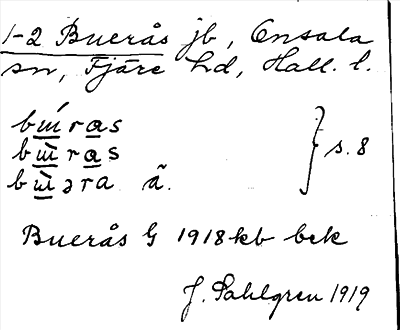 1-2 Buerås jb, Onsala
sn, Fjäre hd, Hall. l.
bɯ́ras
bɯ̀ras } s. 8
bɯ̀əra ã.
Buerås G 1918 kb bek
J. Sahlgren 1919